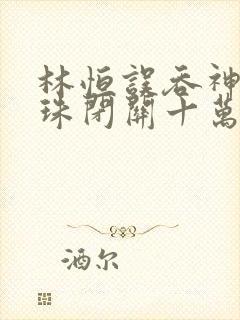 林恒誤吞神
珠閉關十萬
酒尔